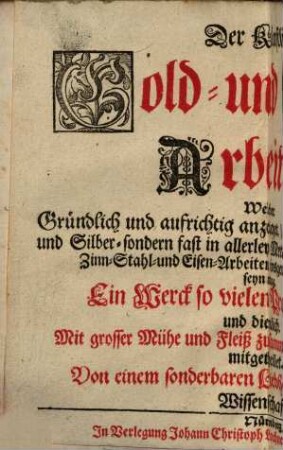 Der
Gold-und
Arbeit
Gründlich und aufrichtig
und Silber-sondern fast in allerley
Zinn-Stahl-und Eisen-Arbeiten
seyn
Ein Werck so vielen
und
Mit grosser Mühe und Fleiß
mitgetheilet
Von einem sonderbaren
Wissenschaf
In Verlegung Johann Christoph